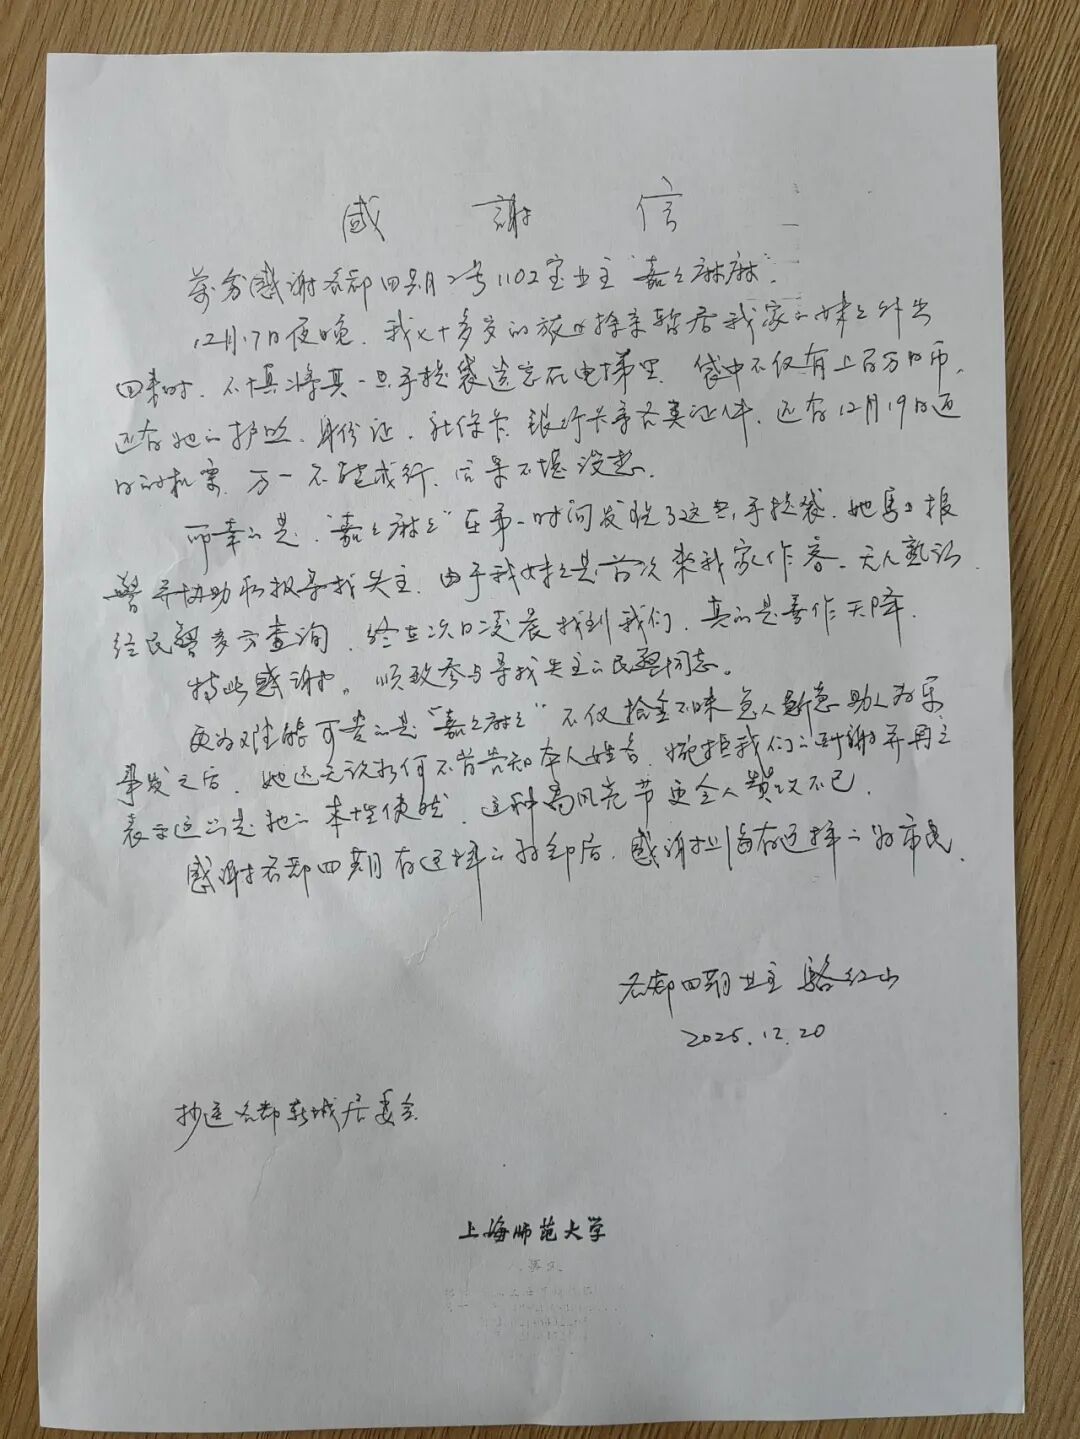 感谢信
万分感谢名都四期2号1102室业主"嘉嘉麻麻".
12月17日夜晚.我七十多岁的旅日探亲暂居我家的妹妹外出
回来时.不慎将其一只手提袋遗忘在电梯里.袋中不仅有上百万日币,
还有她的护照、身份证、社保卡银行卡等各类证件.还有12月19日返
日的机票.万一不能成行.后果不堪设想.
所幸的是."嘉嘉麻麻"在第一时间发现了这只手提袋.她马上报
警并协助积极寻找失主.由于我妹妹是首次来我家作客.无人熟识.
经民警多方查询.终在次日凌晨找到我们.真的是喜从天降.
特此感谢.顺致参与寻找失主的民警同志。
更为难能可贵的是"嘉嘉麻麻"不仅拾金不昧急人所急助人为乐
事发之后.她还无论如何不肯告知本人姓名.婉拒我们的酬谢并再三
表示这只是她的本性使然.这种高风亮节更令人赞叹不已.
感谢名都四期有这样的好邻居.感谢上海有这样的好市民.
名都四期业主 骆红山
2025.12.20
抄送名都新城居委会
上海师范大学